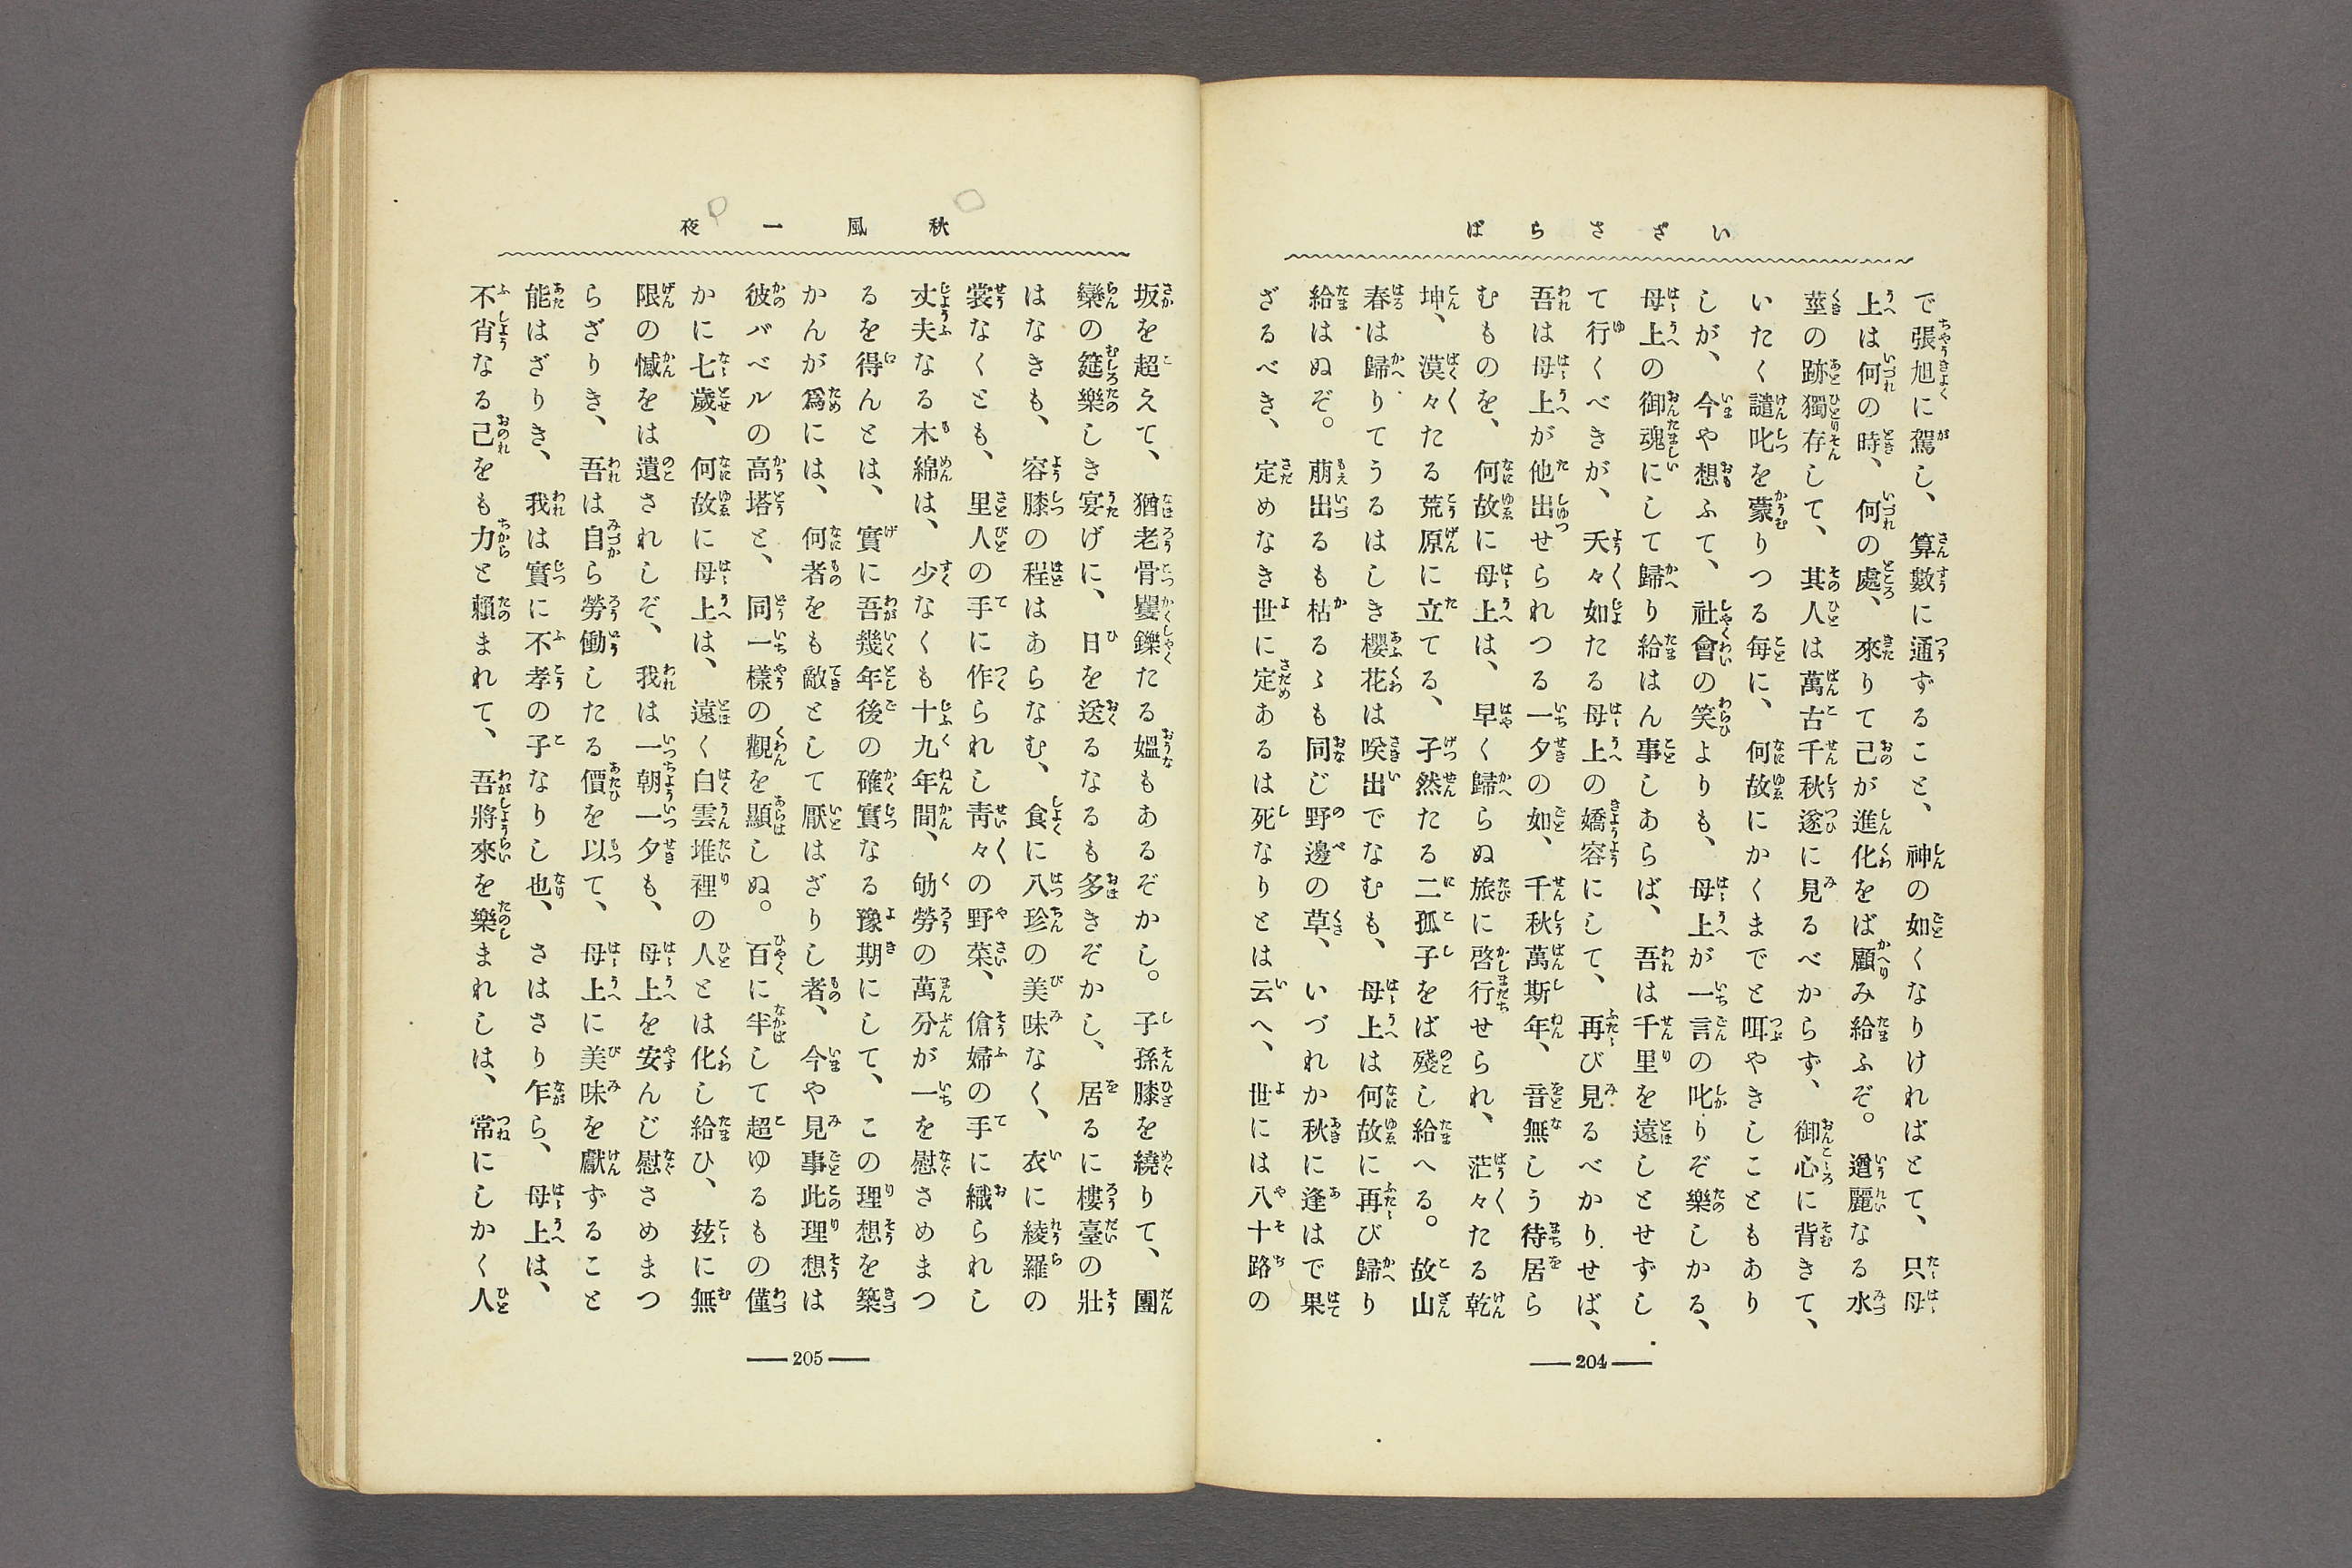 いざさらば
で張旭に駕し、算數に通ずること、神の如くなりければとて、只母
上は何の時、何の處、來りて己が進化をば顧み給ふぞ。遒麗なる水
莖の跡獨存して、其人は萬古千秋遂に見るべからず、御心に背きて、
いたく譴叱を蒙りつる毎に、何故にかくまでと咡やきしこともあり
しが、今や想ふて、社會の笑よりも、母上が一言の叱りぞ樂しかる、
母上の御魂にして歸り給はん事しあらば、吾は千里を遠しとせずし
て行くべきが、夭々如たる母上の嬌容にして、再び見るべかりせば、
吾は母上が他出せられつる一夕の如、千秋萬斯年、音無しう待居ら
むものを、何故に母上は、早く歸らぬ旅に啓行せられ、茫々たる乾
坤、漠々たる荒原に立てる、孑然たる二孤子をば殘し給へる。故山
春は歸りてうるはしき櫻花は咲出でなむも、母上は何故に再び歸り
給はぬぞ。萠出るも枯るゝも同じ野邊の草、いづれか秋に逢はで果
ざるべき、定めなき世に定あるは死なりとは云へ、世には八十路の
204
秋風一夜
坂を超えて、猶老骨矍鑠たる媼もあるぞかし。子孫膝を繞りて、團
欒の筵樂しき宴げに、日を送るなるも多きぞかし、居るに樓臺の壯
はなきも、容膝の程はあらなむ、食に八珍の美味なく、衣に綾羅の
裳なくとも、里人の手に作られし靑々の野菜、傖婦の手に織られし
丈夫なる木綿は、少なくも十九年間、劬勞の萬分が一を慰さめまつ
るを得んとは、實に吾幾年後の確實なる豫期にして、この理想を築
かんが爲には、何者をも敵として厭はざりし者、今や見事此理想は
彼バベルの高塔と、同一樣の觀を顯しぬ。百に半して超ゆるもの僅
かに七歲、何故に母上は、遠く白雲堆裡の人とは化し給ひ、玆に無
限の憾をは遺されしぞ、我は一朝一夕も、母上を安んじ慰さめまつ
らざりき、吾は自ら勞働したる價を以て、母上に美味を獻ずること
能はざりき、我は實に不孝の子なりし也、さはさり乍ら、母上は、
不肖なる己をも力と賴まれて、吾將來を樂まれしは、常にしかく人
205